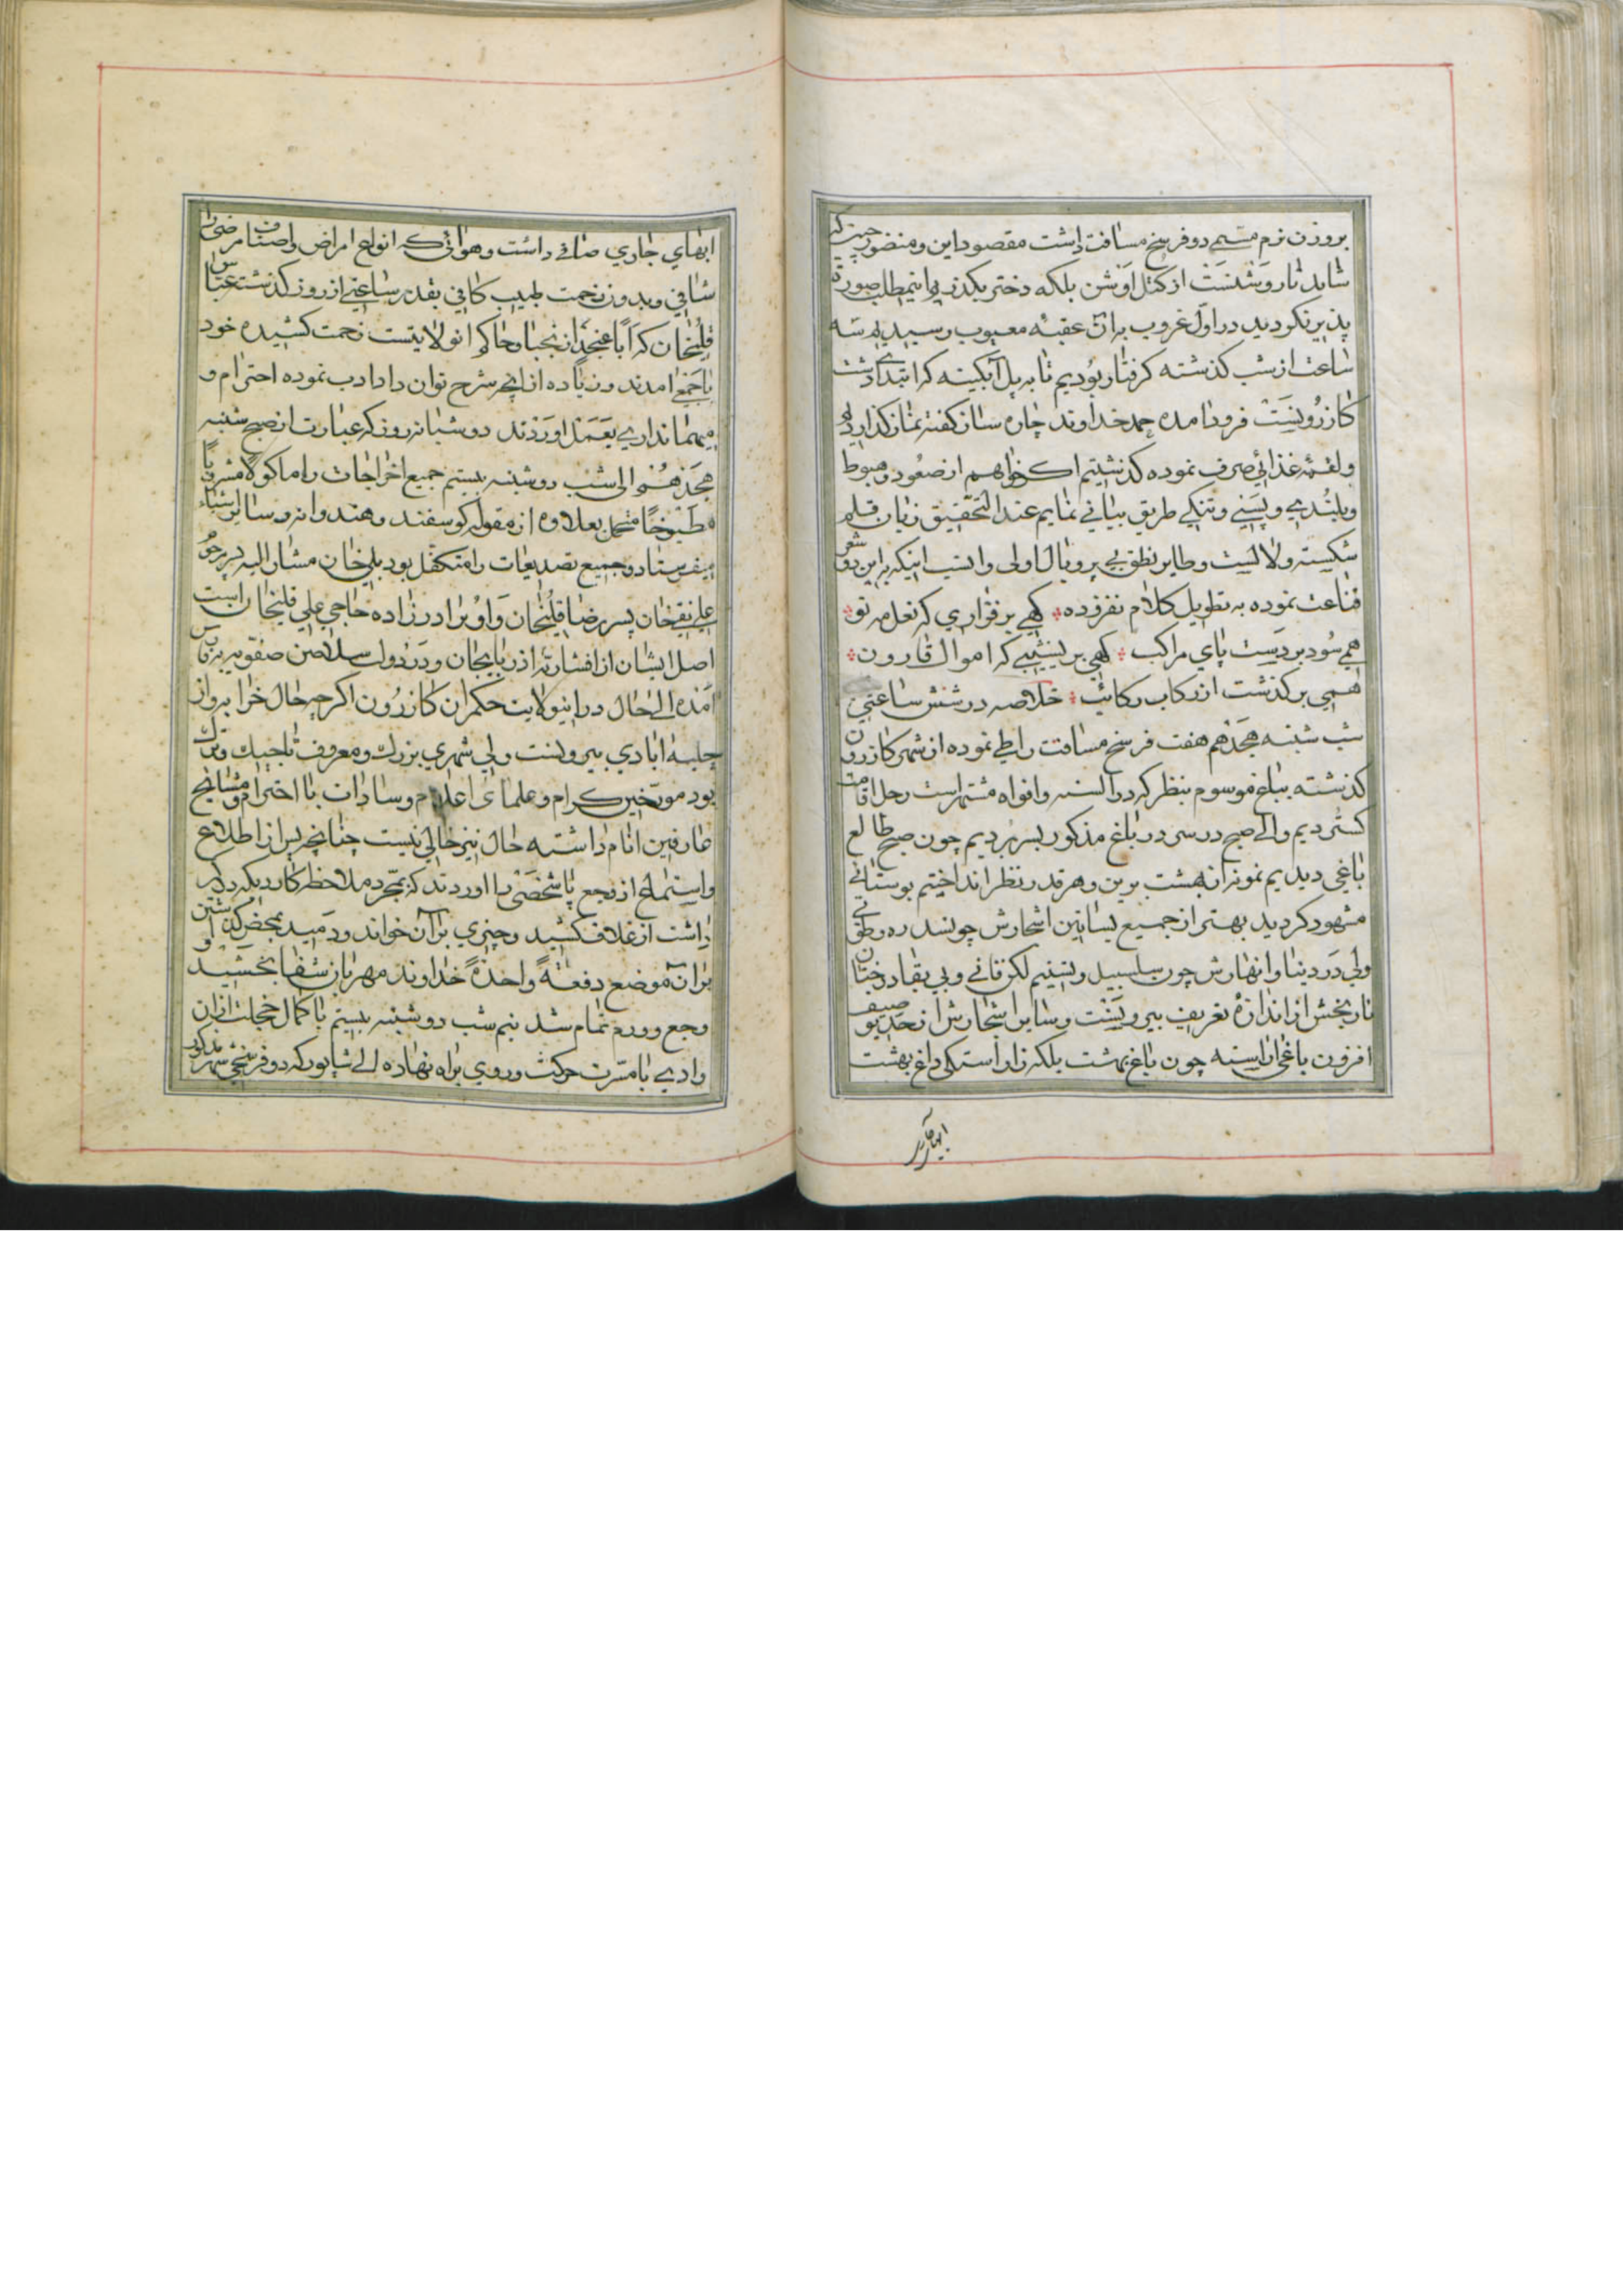 بروزن نرم مسمی دو فرسخ مسافت داشت مقصود این و منضور
شاید تا روشنست از کتل اوشن بلکه دختر بکذریم اینمطلب صورت
پذیر نکردید در اول غروب بران عقبه معیوب رسیدیم سه
ساعت از شب کذشته کرفتار بودیم تا به پل آبکینه که ابتدای دشت
کازرونست فرود امده حمد خداوند چاره ساز کفته نماز کذارده
ولقمه غذائی صرف نموده کذشتیم اکر خواهم از صعود و هبوط
و بلندی و پستی و تنکی طریق بیانی نمایم عند التحقیق زبان قلم
شکسته و لالست و طایر نطق بی پر و بال اولی و انسب اینکه باین دو شعر
قناعت نموده به تطویل کلام نفزوده کهی بر فرازی که نعل مه نو
همی سود بر دست پای مراکب کهی بر نشیبی که اموال قارون
همی بر کذشت از رکاب رکائب خلاصه در شش ساعتی
شب شنبه هجدهم هفت فرسخ مسافت را طی نموده از شهر کازرون
کذشته بباغ موسوم بنظر که در السنه و افواه مشتهر است رحل اقامت
کستردیم و الی صبح در سی در باغ مذکور بسر بردیم چون صبح طالع
باغی دیدیم نمونه از بهشت برین و هر قدر نظر انداختیم بوستانی
مشهود کردید بهتر از جمیع بساتین اشجارش چو نسدره وطوبی
ولی در دنیا و انهارش چون سلسبیل و تسنیم لکن فانی و بی بقا درختان
نارنجش از اندازهٔ تعریف بیرونست و سایر اشجارش از حد توصیف
افزون باغی اراسته چون باغ بهشت بلکه زان راستکی داغ بهشت
ابهای جاری
ابهای جاری صافی داشت و هوائی که انواع امراض و اصناف مرضی را
شافی و بدون زحمت طبیب کافی بقدر ساعتی از روز کذشته عباس
قلیخان که اباً عنجدٍ از نجبا و حاکم انولایتست زحمت کشیده خود
با جمعی امدند و زیاده از انچه شرح توان داد ادب نموده احترام و
میهمانداری بعمل اوردند دو شبانه روز که عبارت از صبح شنبه
هجدهم الی شب دوشنبه بیستم جمیع اخراجات را ماکولا مشروباً
مطبوخاً متحمل بعلاوه از مقوله کوسفند و هندوانه و سایر اشیاء
میفرستاد و جمیع تصدیعات را متکفل بود بلیخان مشار الیه پسر مرحوم
علی نقیخان پسر رضا قلیخان و او برادر زاده حاجی علی قلیخان است
اصل ایشان از افشاریه اذربایجان و در دولت سلاطین صفویه بفارس
امده الی حال در اینولایت حکمران کازرون اکر چه حال خرابه و از
حلیه ابادی بیرونست ولی شهری بزرک و معروف تاجیک و ترک
بود مورخین کرام و علمای اعلام و سادات با احترام و مشایخ
عارفین انام داشته حال نیز خالی نیست چنانچه پس از اطلاع
و استماع از وجع پا شخصی را اوردند که بمجرد ملاحظه کاردیکه در کمر
داشت از غلاف کشید و چیزی بر آن خواند و دمید بمحض کذاشتن او
بر آن موضع دفعةً واحدةً خداوند مهربان شفا بخشید
وجع و ورم تمام شد نیم شب دوشنبه بیستم با کمال خجلت از ان
وادی با مسرت حرکت و روی براه نهاده الی شاپور که دو فرسخی شهر مذکور